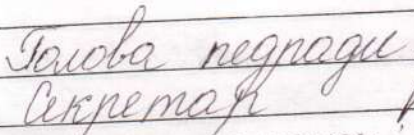 Голова педради
Секретар